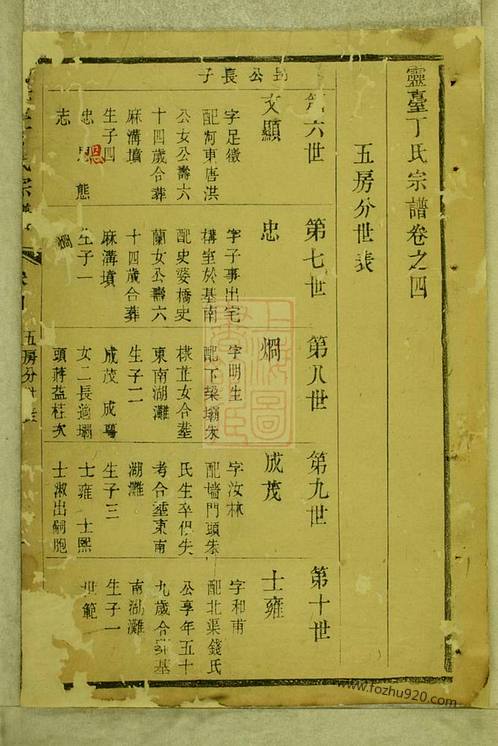 靈臺丁氏宗譜卷之四
五房分世表
第六世
第七世
第八世
第九世
第十世
公長子
文顯
字足徵
配河東唐洪
公女公壽六
十四歲合葬
麻溝墳
生子四
忠 恩 態
志
忠
字子事出宅
構室於基南
配史婆橋史
蘭女公壽六
十四歲合葬
麻溝墳
生子一
烱
烱
字明生
配下梁壩朱
東南湖灘
生子二
成茂
女二長適壩
頭蔣益枉次
成茂
字汝林
配墻門頭朱
氏生卒俱失
考合塟東南
湖灘
生子三
士雍 士熙
士淑出嗣胞
士雍
字和甫
配北渠錢氏
公享年五十
九歲合塟基
南湖灘
生子一
世範
五房分世表
www.fozhu920.com